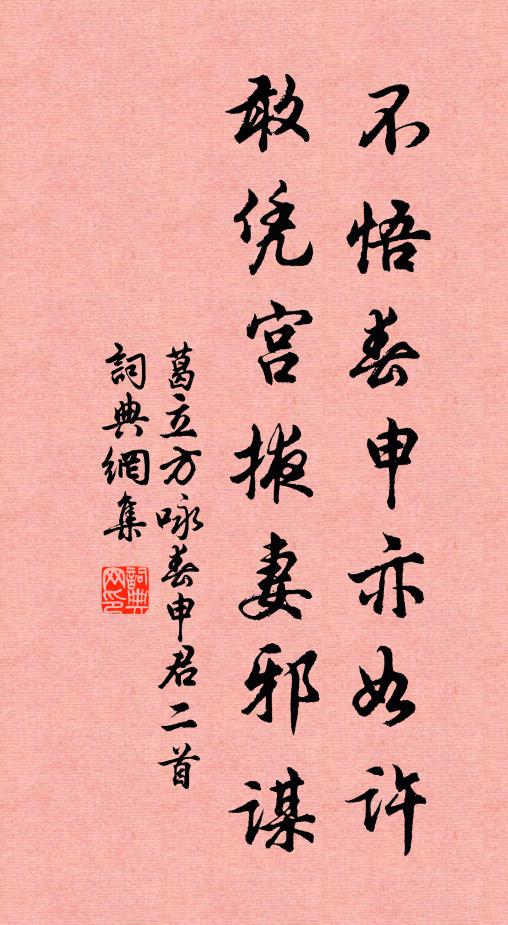 不悟春申亦如许
敢凭宫掖妻邪谋
葛立方咏春申君二首
詞典網集
詞典网印